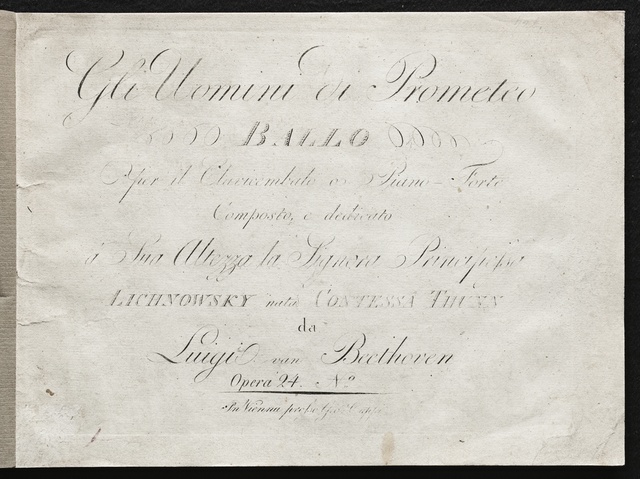 Gli Uomini di Prometeo
BALLO
per il Clavicembalo o Piano-Forte
Composto, e dedicato
a Sua Altezza la Signora Principessa
LICHNOWSKY nata CONTESSA THUNN
da
Luigi van Beethoven
Opera 24. No
In Vienna